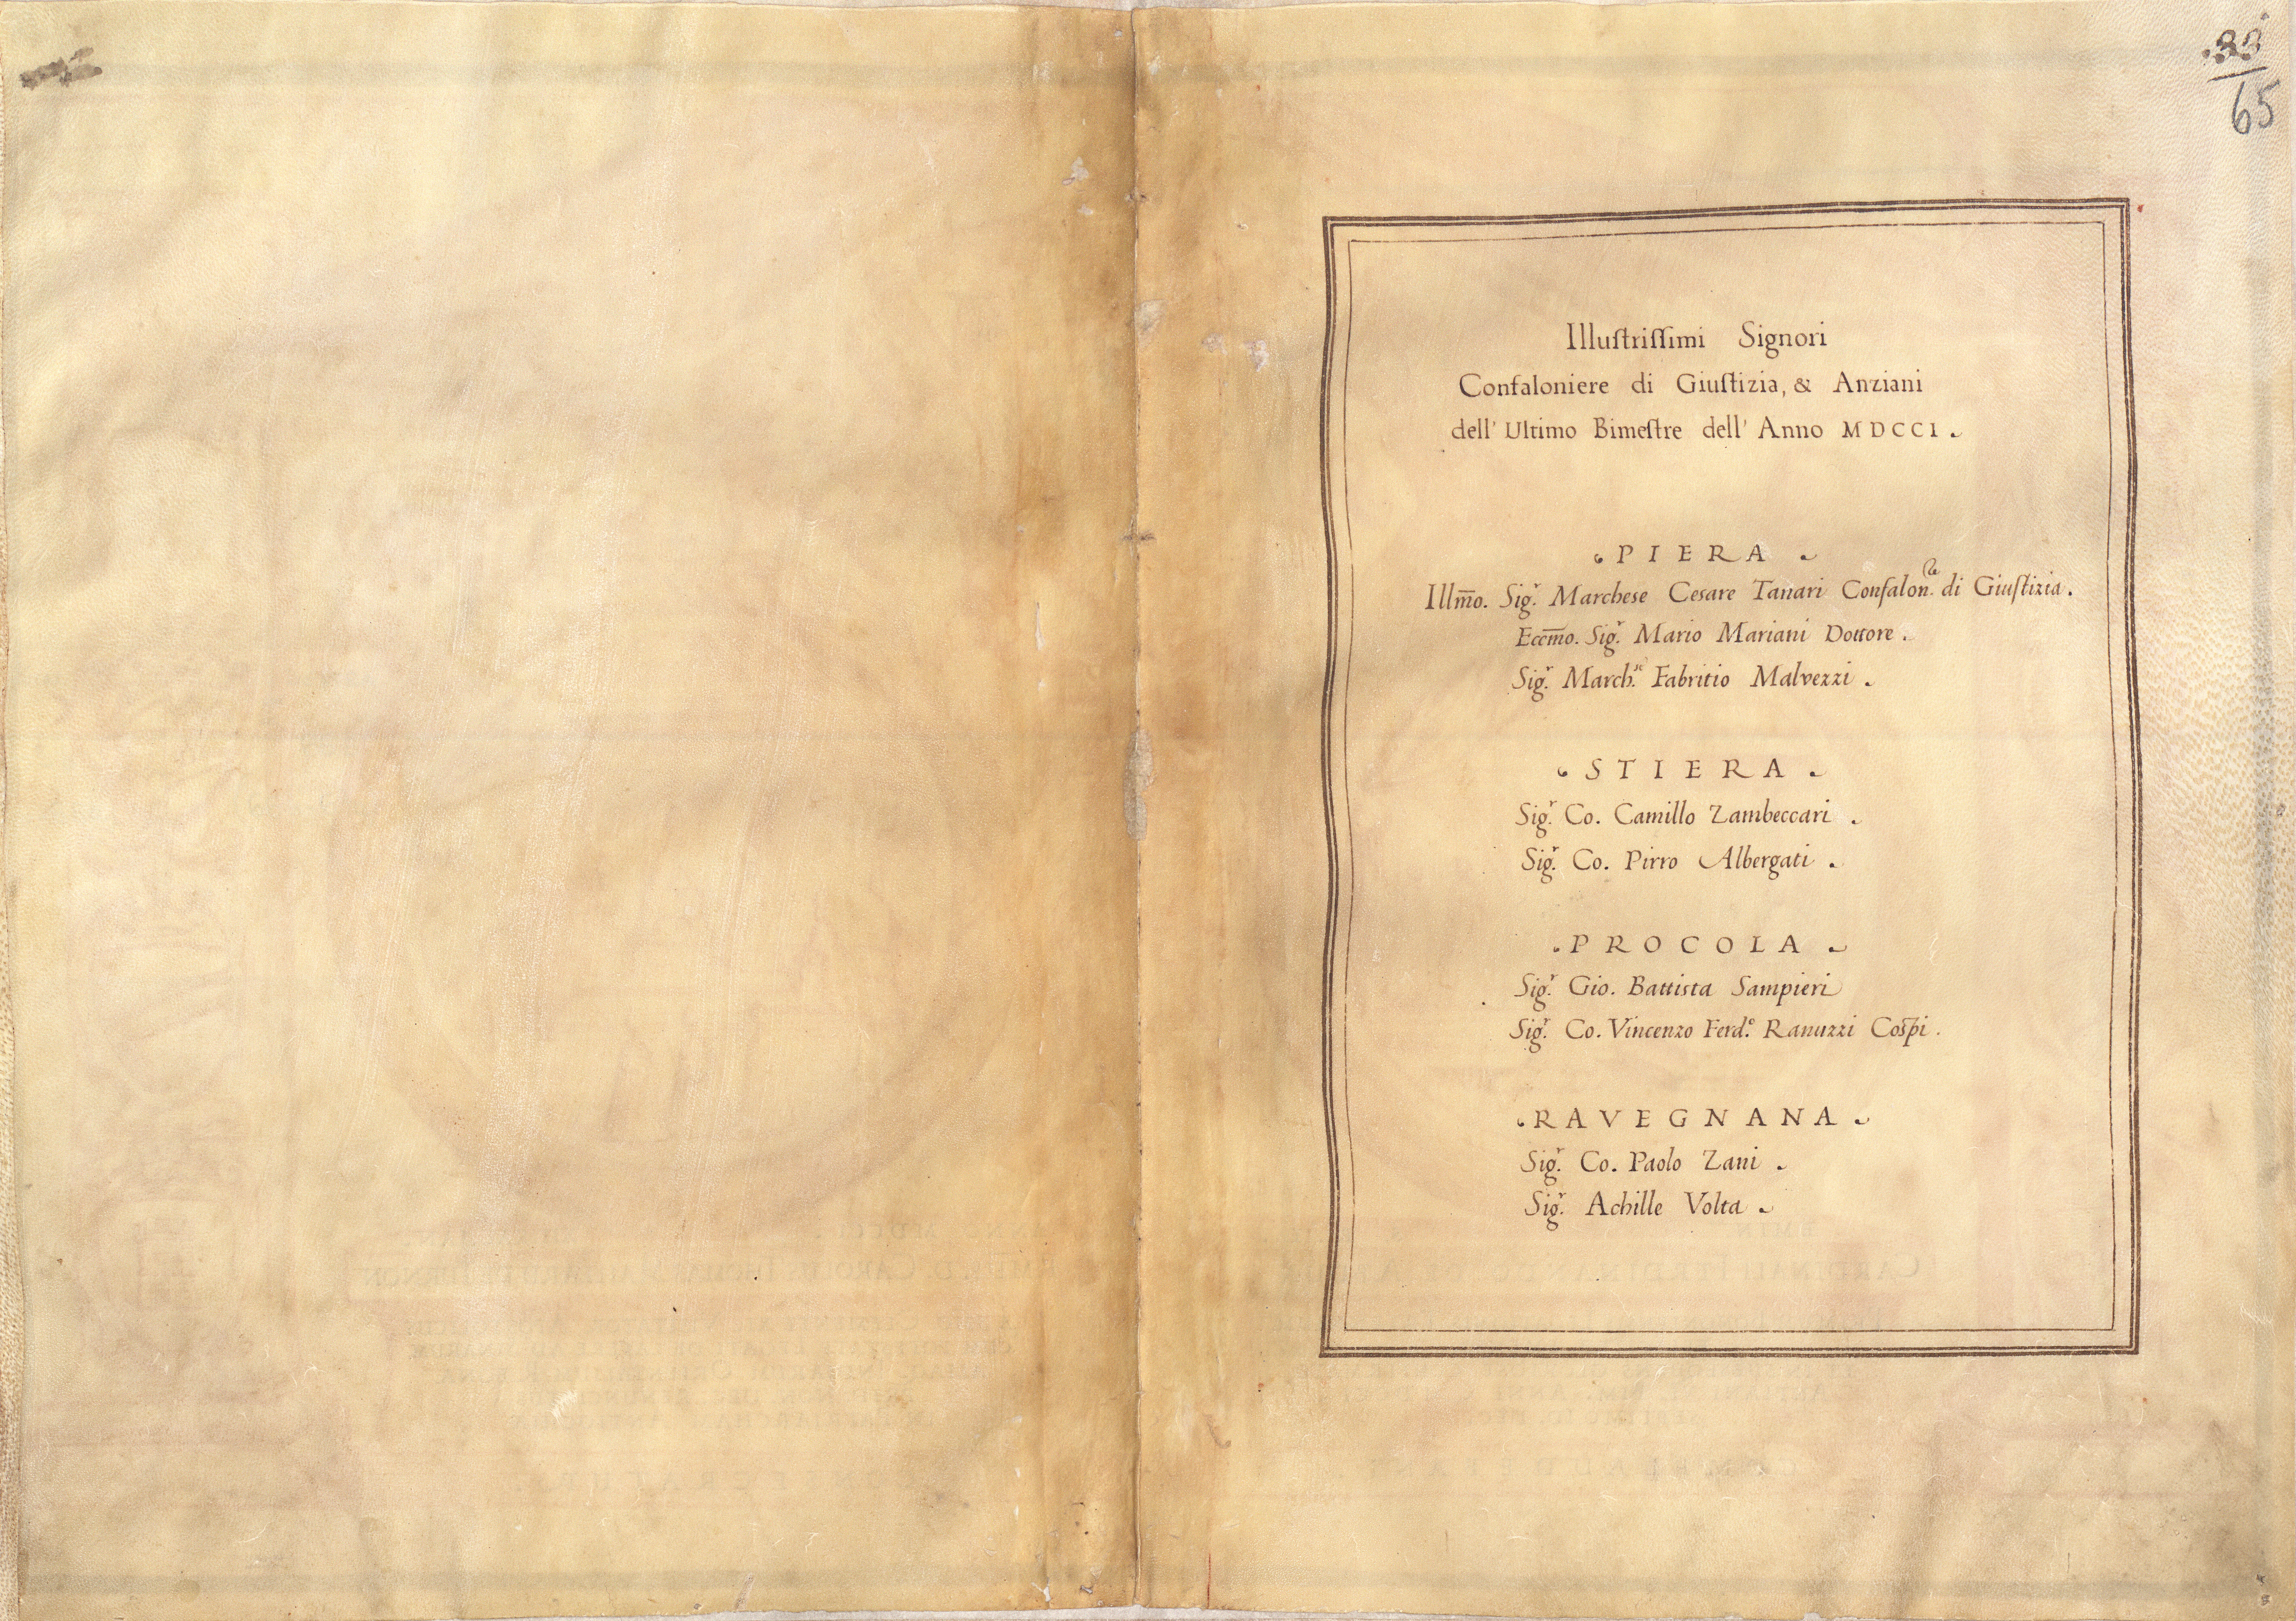 .33.
65
Illuſtriſſimi Signori
Confaloniere di Giuſtizia, & Anziani
dell' Ultimo Bimeſtre dell' Anno MDCCI.
PIERA
Illm̃o. Sig.r Marchese Cesare Tanari Confalon.re di Giuſtizia.
Eccm̃o. Sig.r Mario Mariani Dottore.
Sig.r March.se Fabritio Malvezzi.
STIERA.
Sig.r Co. Camillo Zambeccari.
Sig.r Co. Pirro Albergati.
PROCOLA
Sig.r Gio. Battista Sampieri
Sig.r Co. Vincenzo Ferd.o Ranuzzi Cospi.
RAVEGNANA
Sig.r Co. Paolo Zani.
Sig.r Achille Volta